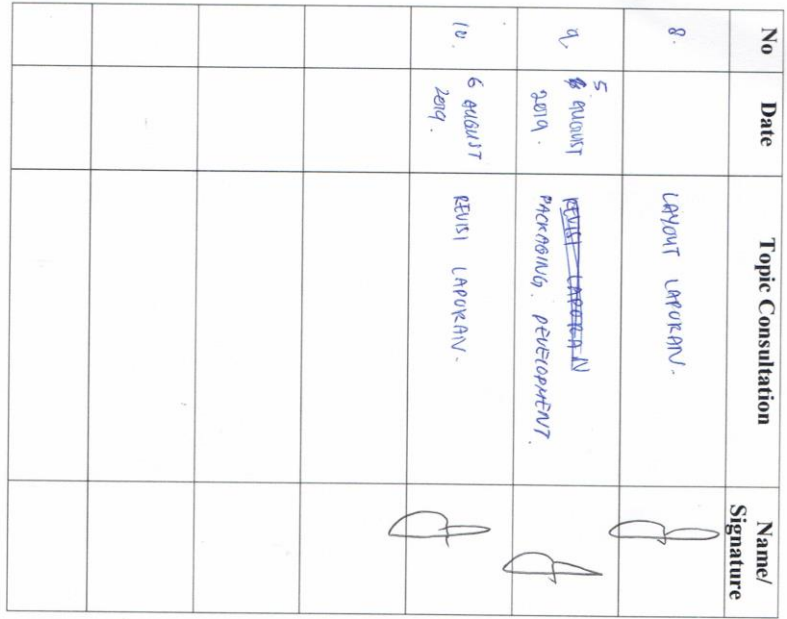 No Date Topic Consultation Name/
Signature
8. LAYOUT LAPORAN.
9 5 AUGUST
2019.
REVISI LAPORAN
PACKAGING. DEVELOPMENT.
10. 6 AUGUST
2019.
REVISI LAPORAN.